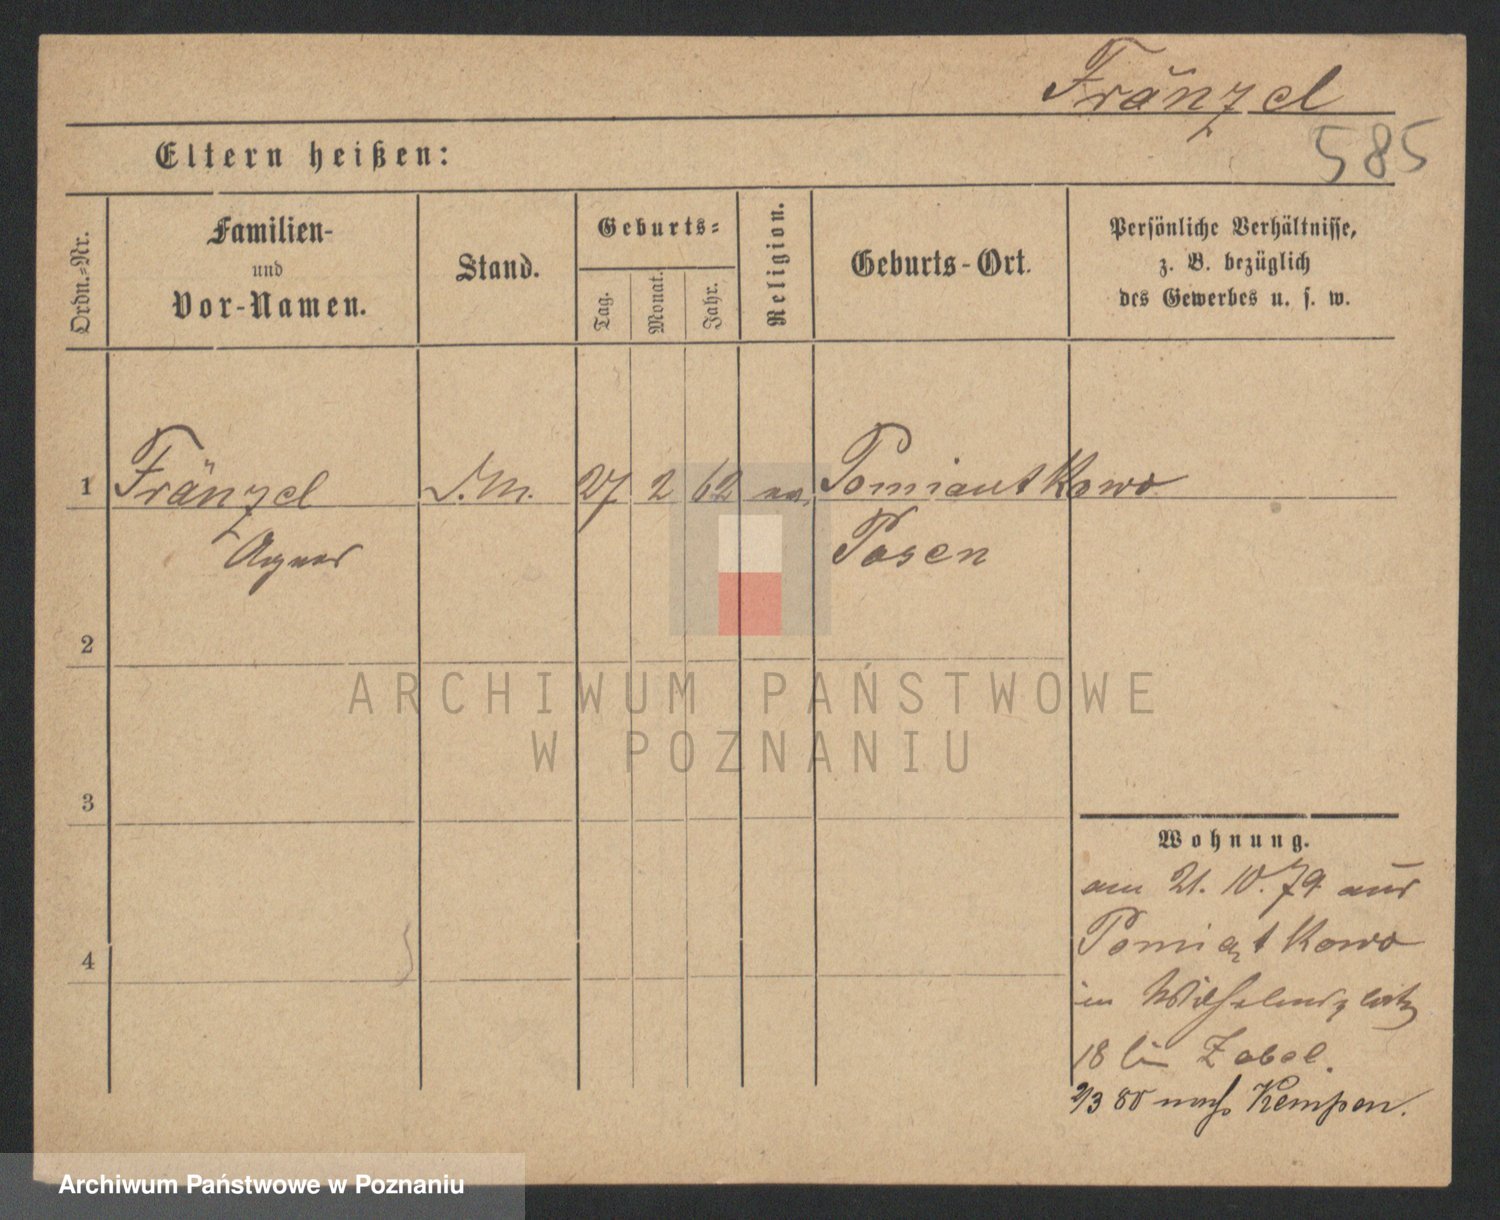 Fränzel
585
Eltern heißen:
Ordn.-Nr.
Familien-
und
Vor-Namen.
Stand.
Geburts-
Tag.
Monat.
Jahr.
Religion.
Geburts-Ort.
Persönliche Verhältnisse,
z. B. bezüglich
des Gewerbes u. s. w.
1 Fränzel 27 2 62 Pomiantkowo
Agnes Posen
2
3
4
Wohnung.
am 21. 10. 79 aus
Pomiątkowo
in Wilhelmsplatz
18 bei Zobel.
2/3 80 nach Kempen.
ARCHIWUM PAŃSTWOWE
W POZNANIU
Archiwum Państwowe w Poznaniu